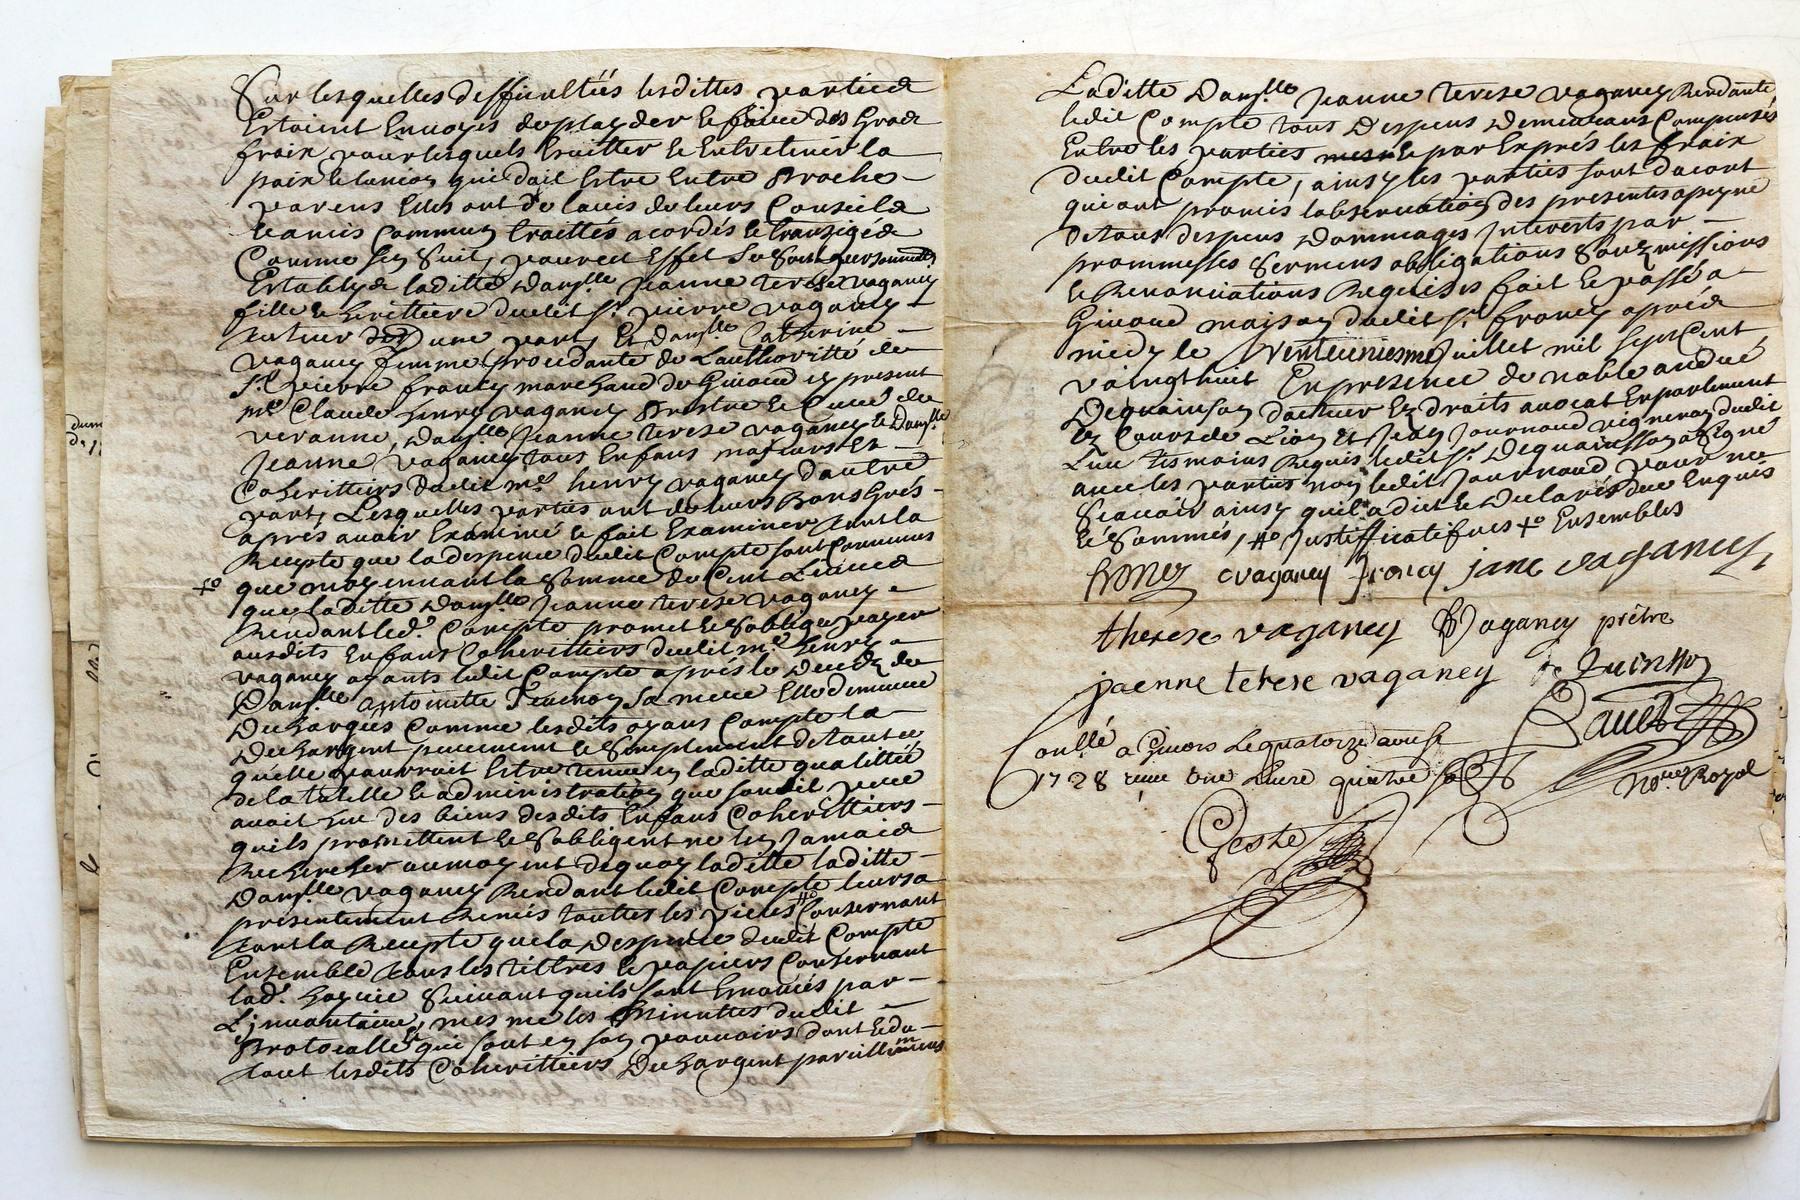 Sur lesquelles difficultés lesdittes parties
Estoient Envoyes de playder et faire des Grads
fraix pour lesquels Evitter et Entretenir la
paix et lunion qui doit Estre Entre Proches
parens Elles ont de lavis de leurs Conseils
et amis Commun traittés acordés et transigés
Comme sen suit, pour cet Effet Se Sont personnell
Establys laditte damslle Jeanne terese vaganey
fille et herittiere dudit Sr pierre vaganey
tuteur dune part, Et damslle Catherine
vaganey femme procedante de Lauthoritté de
Sr pierre francey marchand de Givord cy present
mre Claude henry vaganey Prestre et Curé de
veranne, damslle Jeanne terese vaganey et damslle
Jeanne vaganey tous Enfans majeurs Et
Coherittiers dudit me henry vaganey dautre
part, Lesquelles parties ont de leurs Bons Grés
apres avoir Examiné et fait Examiner tant la
Recepte que la despence dudit Compte sont Convenus
que moyennant la Somme de Cent Livres
que laditte damslle Jeanne terese vaganey
Rendant led. Compte promet et Soblige payer
ausdits Enfans Coherittiers dudit me henry
vaganey oyants ledit Compte aprés le Decedz de
Damslle antoinette Sa mere Elle demeure
Dechargés Comme lesdits oyans Compte la
Dechargent purement et Simplement de tout ce
quelle pourroit Estre tenue en laditte qualittée
de la tutelle et administration que sondit pere
avoit eue des biens desdits Enfans Coherittiers
quils promettent et Sobligent ne len Jamais
Rechercher au moyent dequoy laditte laditte
Damslle vaganey Rendant ledit Compte leurs a
presentement Remis touttes les pieces Consernant
tant la Recepte que la despence dudit Compte
Ensemble tous les tiltres et papiers Consernant
lad. hoyrie Suivant quils sont Enoncés par
Linvantaire, mesme les Minuttes dudit
Protocolle qui sont en son pouvoirs dont et du
tout lesdits Coherittiers Dechargent pareillement
Laditte Damslle Jeanne terese vaganey Rendante
ledit Compte tous Despens Demeurans Compensés
Entre les parties mesme par Exprés les fraix
dudit Compte, ainsy les parties sont dacort
qui ont promis lobservation des presentes apeyne
de tous despens dommages Interests par
prommesses Sermens obligations Soubmissions
et Renonciations Requises fait et passé a
Givord maison dudit Sr francey aprés
midy le vent uniesme Juillet mil sept Cent
vaingt huit En presence de noble andre
Dequainson docteur Ez droits avocat En parlement
Ez Cours de Lion Et Jean Journoud vigneron dudit
Lieu tesmoins Requis ledit Sr Dequainsson a Signé
avec les parties non ledit Journoud pour ne
Scavoir ainsy quil a dit et declaré de ce Enquis
et Sommés, Justifficatifves Ensembles
cvaganey francey jane vaganey
therese vaganey vaganey prêtre
jaenne terese vaganey de Quinson
Conllé a Givors le quatorze aoust
1728
Nore Royal
Geste